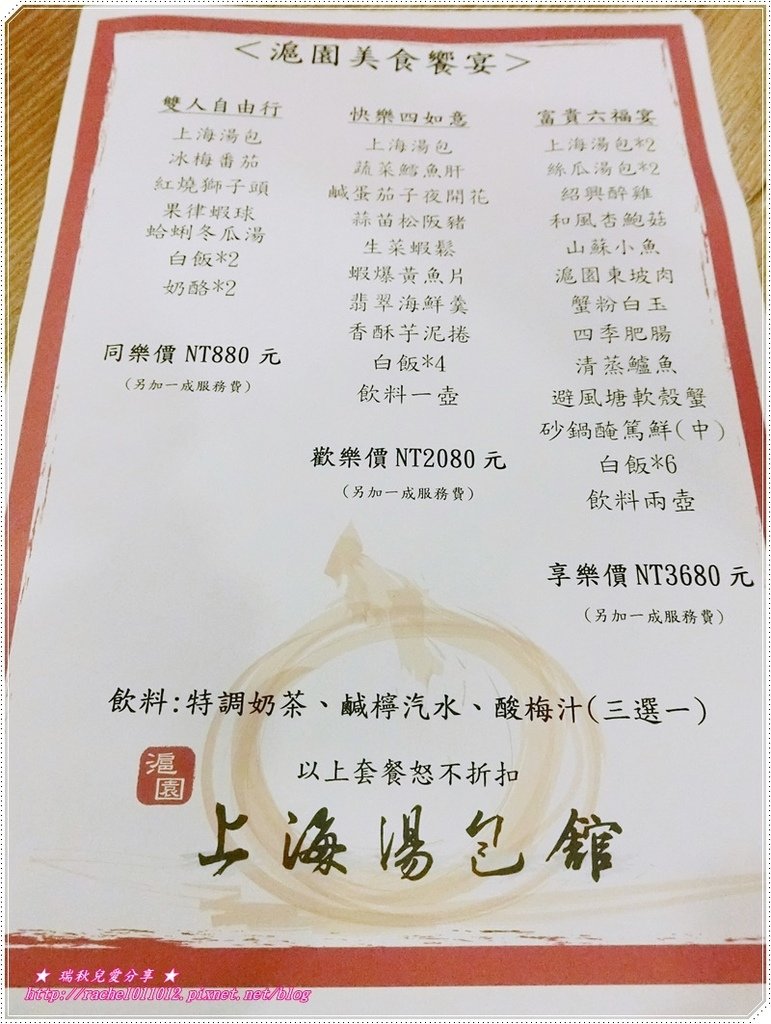 <滬園美食饗宴>
雙人自由行
上海湯包
冰梅番茄
紅燒獅子頭
果律蝦球
蛤蜊冬瓜湯
白飯*2
奶酪*2
同樂價 NT880 元
(另加一成服務費)
快樂四如意
上海湯包
蔬菜鱈魚肝
鹹蛋茄子夜開花
蒜苗松阪豬
生菜蝦鬆
蝦爆黃魚片
翡翠海鮮羹
香酥芋泥捲
白飯*4
飲料一壺
歡樂價 NT2080 元
(另加一成服務費)
富貴六福宴
上海湯包*2
絲瓜湯包*2
紹興醉雞
和風杏鮑菇
山蘇小魚
滬園東坡肉
蟹粉白玉
四季肥腸
清蒸鱸魚
避風塘軟殼蟹
砂鍋醃篤鮮(中)
白飯*6
飲料兩壺
享樂價 NT3680 元
(另加一成服務費)
飲料:特調奶茶、鹹檸汽水、酸梅汁(三選一)
以上套餐怒不折扣
滬園
上海湯包館
★ 瑞秋兒愛分享 ★
http://rachel011012.pixnet.net/blog